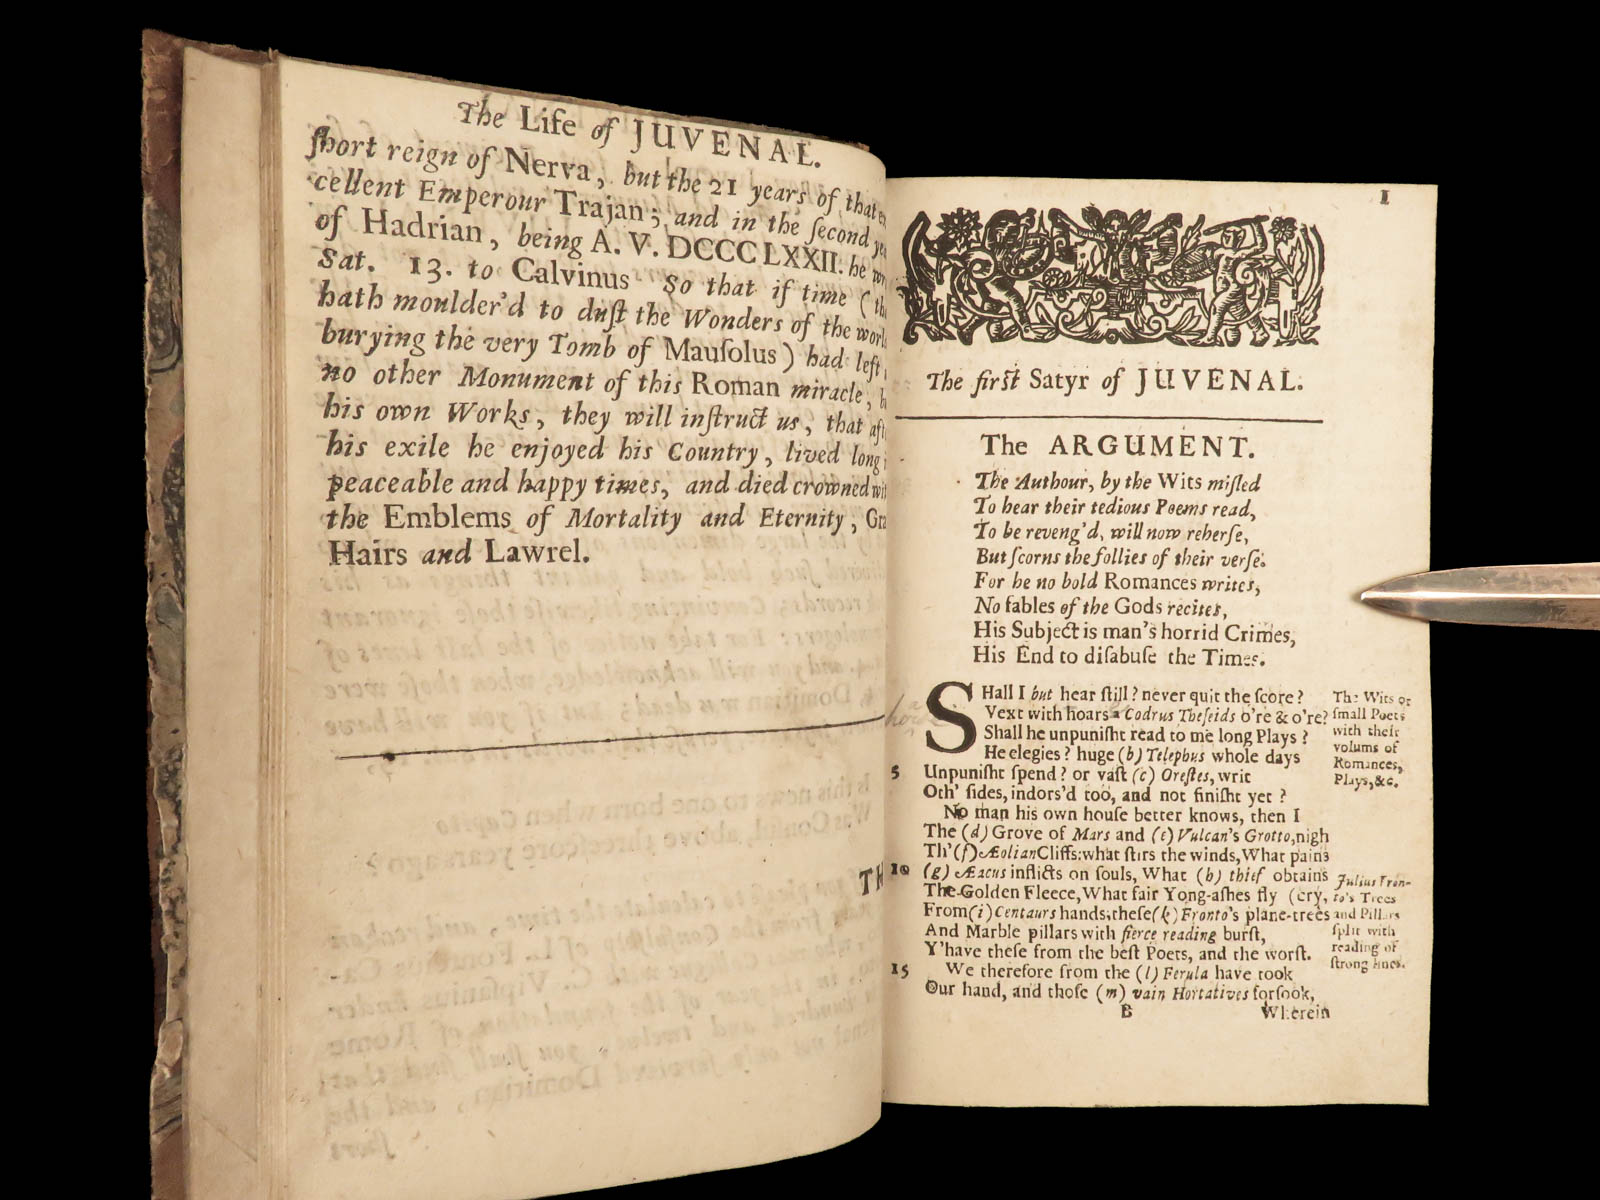 The Life of JUVENAL.
ſhort reign of Nerva, but the 21 years of that ex
cellent Emperour Trajan; and in the ſecond
of Hadrian, being A. V. DCCCLXXII. he
Sat. 13. to Calvinus So that if time (
hath moulder'd to duſt the Wonders of the
burying the very Tomb of Mauſolus) had left
no other Monument of this Roman miracle,
his own Works, they will inſtruct us, that
his exile he enjoyed his Country, lived long
peaceable and happy times, and died crowned
the Emblems of Mortality and Eternity,
Hairs and Lawrel.
TH
1
The firſt Satyr of JUVENAL.
The ARGUMENT.
The Authour, by the Wits miſled
To hear their tedious Poems read,
To be reveng'd, will now reherſe,
But ſcorns the follies of their verſe.
For he no bold Romances writes,
No fables of the Gods recites,
His Subject is man's horrid Crimes,
His End to diſabuſe the Times.
SHall I but hear ſtill? never quit the ſcore?
Vext with hoars a Codrus Theſeids o're & o're?
Shall he unpuniſht read to me long Plays?
He elegies? huge (b) Telephus whole days
5 Unpuniſht ſpend? or vaſt (c) Oreſtes, writ
Oth' ſides, indors'd too, and not finiſht yet?
No man his own houſe better knows, then I
The (d) Grove of Mars and (e) Vulcan's Grotto, nigh
Th' (f) Æolian Cliffs: what ſtirs the winds, What pains
10 (g) Æacus inflicts on ſouls, What (h) thief obtains
The Golden Fleece, What fair Yong-aſhes fly (cry,
From (i) Centaurs hands; theſe (k) Fronto's plane-trees
And Marble pillars with fierce reading burſt,
Y'have theſe from the beſt Poets, and the worſt.
15 We therefore from the (l) Ferula have took
Our hand, and thoſe (m) vain Hortatives forſook,
B Wherein
The Wits or
ſmall Poets
with their
volums of
Romances,
Plays, &c.
Julius Fron-
to's Trees
and Pillars
ſplit with
reading of
ſtrong lines.